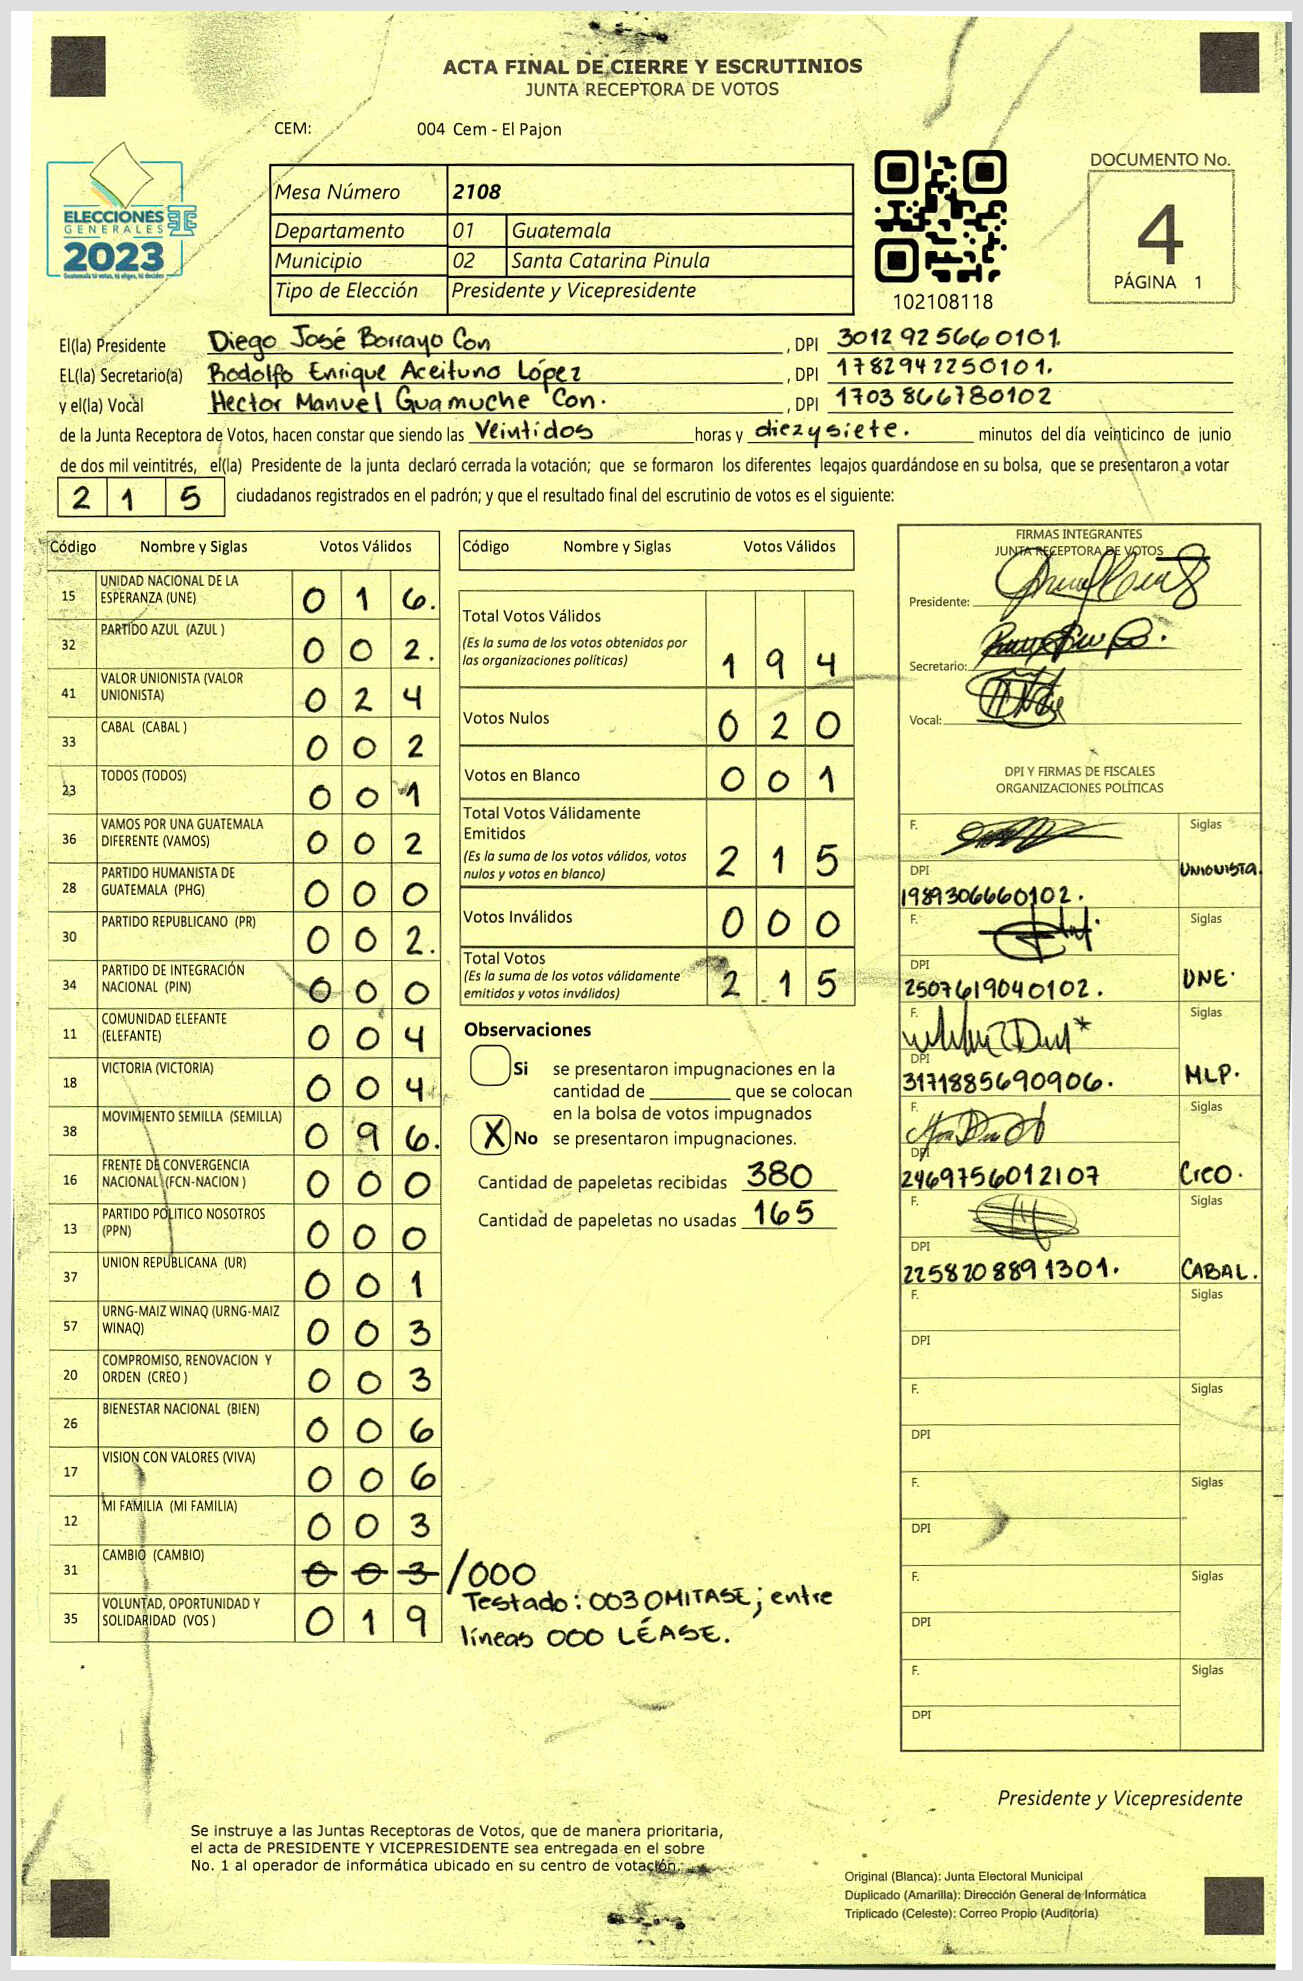 ACTA FINAL DE CIERRE Y ESCRUTINIOS
JUNTA RECEPTORA DE VOTOS
CEM: 004 Cem - El Pajon
ELECCIONES
GENERALES
2023
Guatemala tú votas, tú eliges, tú decides
Mesa Número 2108
Departamento 01 Guatemala
Municipio 02 Santa Catarina Pinula
Tipo de Elección Presidente y Vicepresidente
102108118
DOCUMENTO No.
4
PÁGINA 1
El(la) Presidente Diego José Borrayo Con , DPI 3012925660101.
EL(la) Secretario(a) Rodolfo Enrique Aceituno López , DPI 1782942250101.
y el(la) Vocal Hector Manuel Guamuche Con. , DPI 1703866780102
de la Junta Receptora de Votos, hacen constar que siendo las Veintidos horas y diezysiete. minutos del día veinticinco de junio
de dos mil veintitrés, el(la) Presidente de la junta declaró cerrada la votación; que se formaron los diferentes legajos guardándose en su bolsa, que se presentaron a votar
2 1 5 ciudadanos registrados en el padrón; y que el resultado final del escrutinio de votos es el siguiente:
Código Nombre y Siglas Votos Válidos
15 UNIDAD NACIONAL DE LA
ESPERANZA (UNE) 0 1 6.
32 PARTIDO AZUL (AZUL ) 0 0 2.
41 VALOR UNIONISTA (VALOR
UNIONISTA) 0 2 4
33 CABAL (CABAL ) 0 0 2
23 TODOS (TODOS) 0 0 1
36 VAMOS POR UNA GUATEMALA
DIFERENTE (VAMOS) 0 0 2
28 PARTIDO HUMANISTA DE
GUATEMALA (PHG) 0 0 0
30 PARTIDO REPUBLICANO (PR) 0 0 2.
34 PARTIDO DE INTEGRACIÓN
NACIONAL (PIN) 0 0 0
11 COMUNIDAD ELEFANTE
(ELEFANTE) 0 0 4
18 VICTORIA (VICTORIA) 0 0 4
38 MOVIMIENTO SEMILLA (SEMILLA) 0 9 6.
16 FRENTE DE CONVERGENCIA
NACIONAL (FCN-NACION ) 0 0 0
13 PARTIDO POLITICO NOSOTROS
(PPN) 0 0 0
37 UNION REPUBLICANA (UR) 0 0 1
57 URNG-MAIZ WINAQ (URNG-MAIZ
WINAQ) 0 0 3
20 COMPROMISO, RENOVACION Y
ORDEN (CREO ) 0 0 3
26 BIENESTAR NACIONAL (BIEN) 0 0 6
17 VISION CON VALORES (VIVA) 0 0 6
12 MI FAMILIA (MI FAMILIA) 0 0 3
31 CAMBIO (CAMBIO) 0 0 3 /000
35 VOLUNTAD, OPORTUNIDAD Y
SOLIDARIDAD (VOS ) 0 1 9
Testado: 003 OMITASE; entre
líneas 000 LÉASE.
Código Nombre y Siglas Votos Válidos
Total Votos Válidos
(Es la suma de los votos obtenidos por
las organizaciones políticas) 1 9 4
Votos Nulos 0 2 0
Votos en Blanco 0 0 1
Total Votos Válidamente
Emitidos
(Es la suma de los votos válidos, votos
nulos y votos en blanco) 2 1 5
Votos Inválidos 0 0 0
Total Votos
(Es la suma de los votos válidamente
emitidos y votos inválidos) 2 1 5
Observaciones
Si se presentaron impugnaciones en la
cantidad de ________ que se colocan
en la bolsa de votos impugnados
X No se presentaron impugnaciones.
Cantidad de papeletas recibidas 380
Cantidad de papeletas no usadas 165
FIRMAS INTEGRANTES
JUNTA RECEPTORA DE VOTOS
Presidente:
Secretario:
Vocal:
DPI Y FIRMAS DE FISCALES
ORGANIZACIONES POLÍTICAS
F. Siglas
DPI UNIONISTA.
1989306660102.
F. Siglas
DPI UNE.
2507619040102.
F. Siglas
DPI MLP.
3171885690906.
F. Siglas
DPI
2469756012107 Creo.
F. Siglas
DPI
2258208891301. CABAL.
F. Siglas
DPI
F. Siglas
DPI
F. Siglas
DPI
F. Siglas
DPI
F. Siglas
DPI
Presidente y Vicepresidente
Se instruye a las Juntas Receptoras de Votos, que de manera prioritaria,
el acta de PRESIDENTE Y VICEPRESIDENTE sea entregada en el sobre
No. 1 al operador de informática ubicado en su centro de votación.
Original (Blanca): Junta Electoral Municipal
Duplicado (Amarilla): Dirección General de Informática
Triplicado (Celeste): Correo Propio (Auditoría)